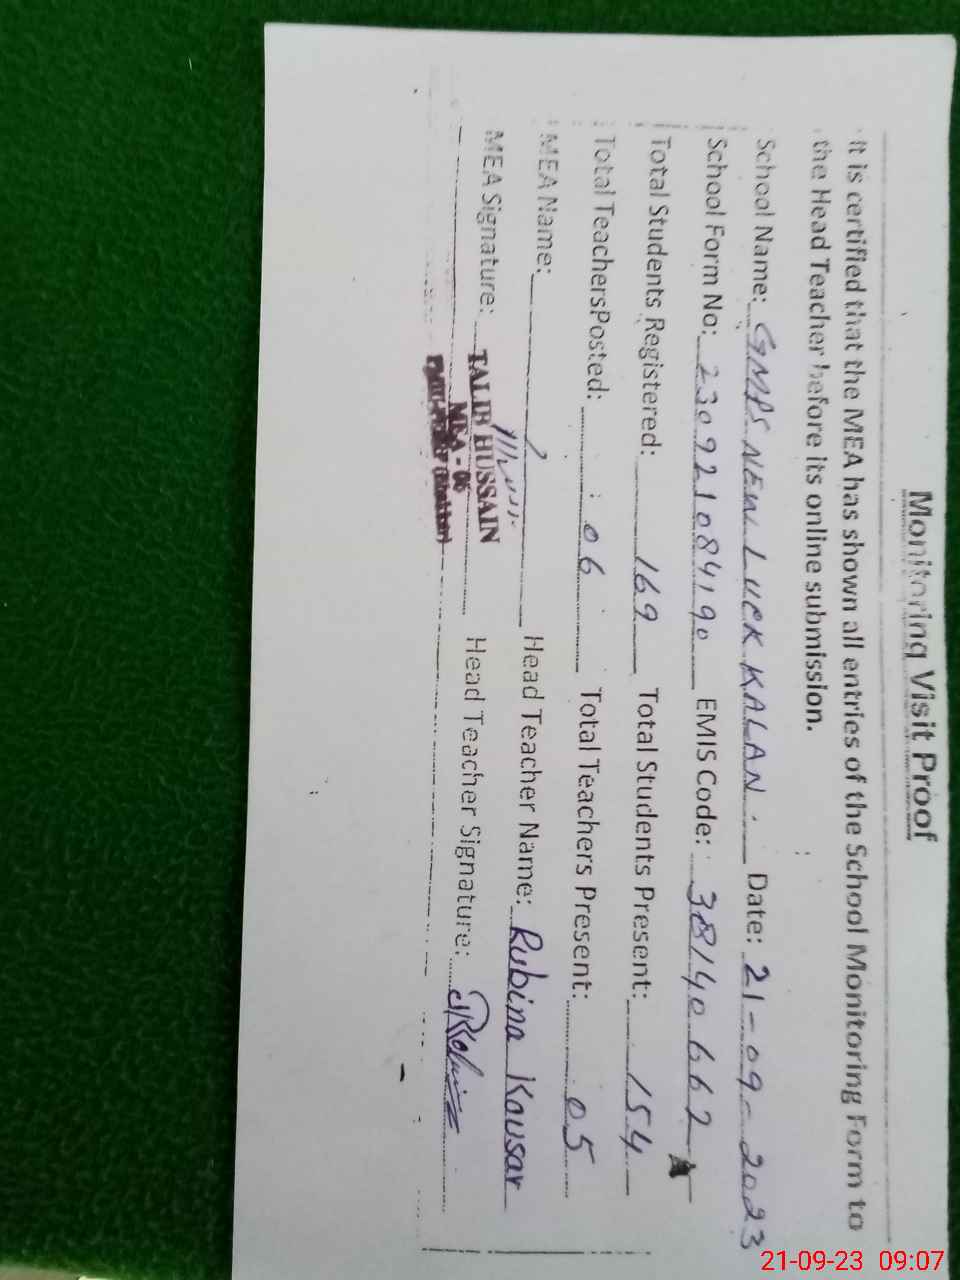 Monitoring Visit Proof
It is certified that the MEA has shown all entries of the School Monitoring Form to
the Head Teacher before its online submission.
School Name: GMPS NEW LUCK KALAN. Date: 21-09-2023
School Form No: 230921084190 EMIS Code: 38140662
Total Students Registered: 169 Total Students Present: 154
Total TeachersPosted: 06 Total Teachers Present: 05
MEA Name: Head Teacher Name: Rubina Kousar
MEA Signature: Head Teacher Signature:
TALIB HUSSAIN
MEA - 06
21-09-23 09:07